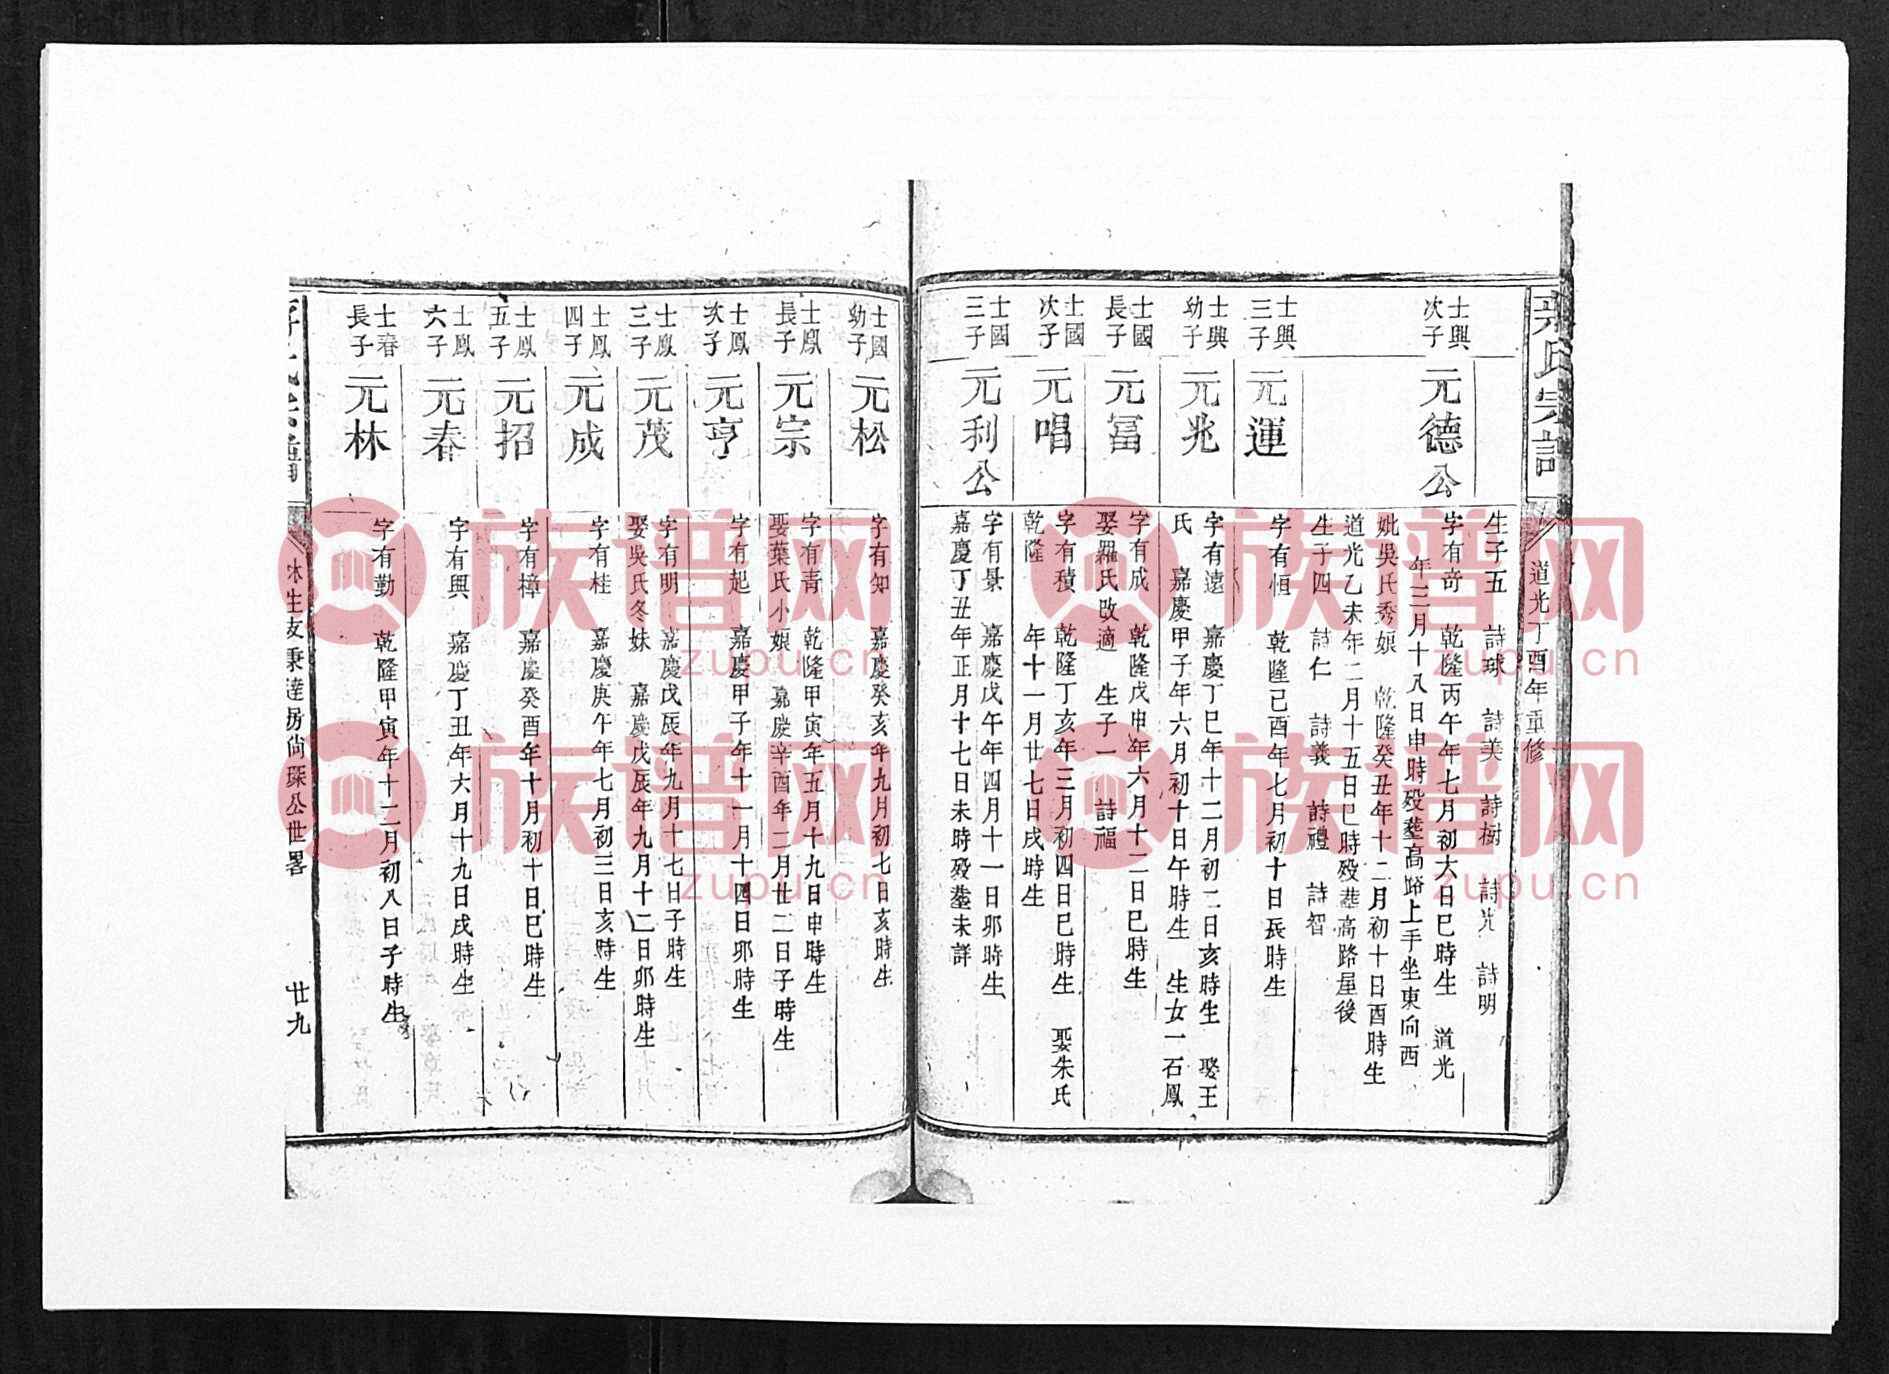 道光丁酉年重修
生子五　詩球　詩美　詩樹　詩光　詩明
士興次子
元德公
字有奇　乾隆丙午年七月初六日巳時生　道光
年三月十八日申時歿塟高路上手坐東向西
妣吳氏秀娘　乾隆癸丑年十二月初十日酉時生
道光乙未年二月十五日巳時歿塟高路屋後
生子四　詩仁　詩義　詩禮　詩智
士興三子
元運
字有恒　乾隆己酉年七月初十日辰時生
士興幼子
元兆
字有遠　嘉慶丁巳年十二月初二日亥時生　娶王
氏　嘉慶甲子年六月初十日午時生　生女一石鳳
士國長子
元富
字有成　乾隆戊申年六月十二日巳時生
娶羅氏改適　生子一　詩福
士國次子
元唱
字有積　乾隆丁亥年三月初四日巳時生　娶朱氏
乾隆　年十一月廿七日戌時生
士國三子
元利公
字有景　嘉慶戊午年四月十一日卯時生
嘉慶丁丑年正月十七日未時歿塟未詳
士國幼子
元松
字有知　嘉慶癸亥年九月初七日亥時生
士鳳長子
元宗
字有青　乾隆甲寅年五月十九日申時生
娶葉氏小娘　嘉慶辛酉年二月廿二日子時生
士鳳次子
元亨
字有起　嘉慶甲子年十一月十四日卯時生
士鳳三子
元茂
字有明　嘉慶戊辰年九月十七日子時生
娶吳氏冬妹　嘉慶戊辰年九月十二日卯時生
士鳳四子
元成
字有桂　嘉慶庚午年七月初三日亥時生
士鳳五子
元招
字有樟　嘉慶癸酉年十月初十日巳時生
士鳳六子
元春
字有興　嘉慶丁丑年六月十九日戌時生
士春長子
元林
字有勤　乾隆甲寅年十二月初八日子時生
林生友秉達房尚琛公世畧
廿九
族谱网
zupu.cn
族谱网
zupu.cn
族谱网
zupu.cn
族谱网
zupu.cn